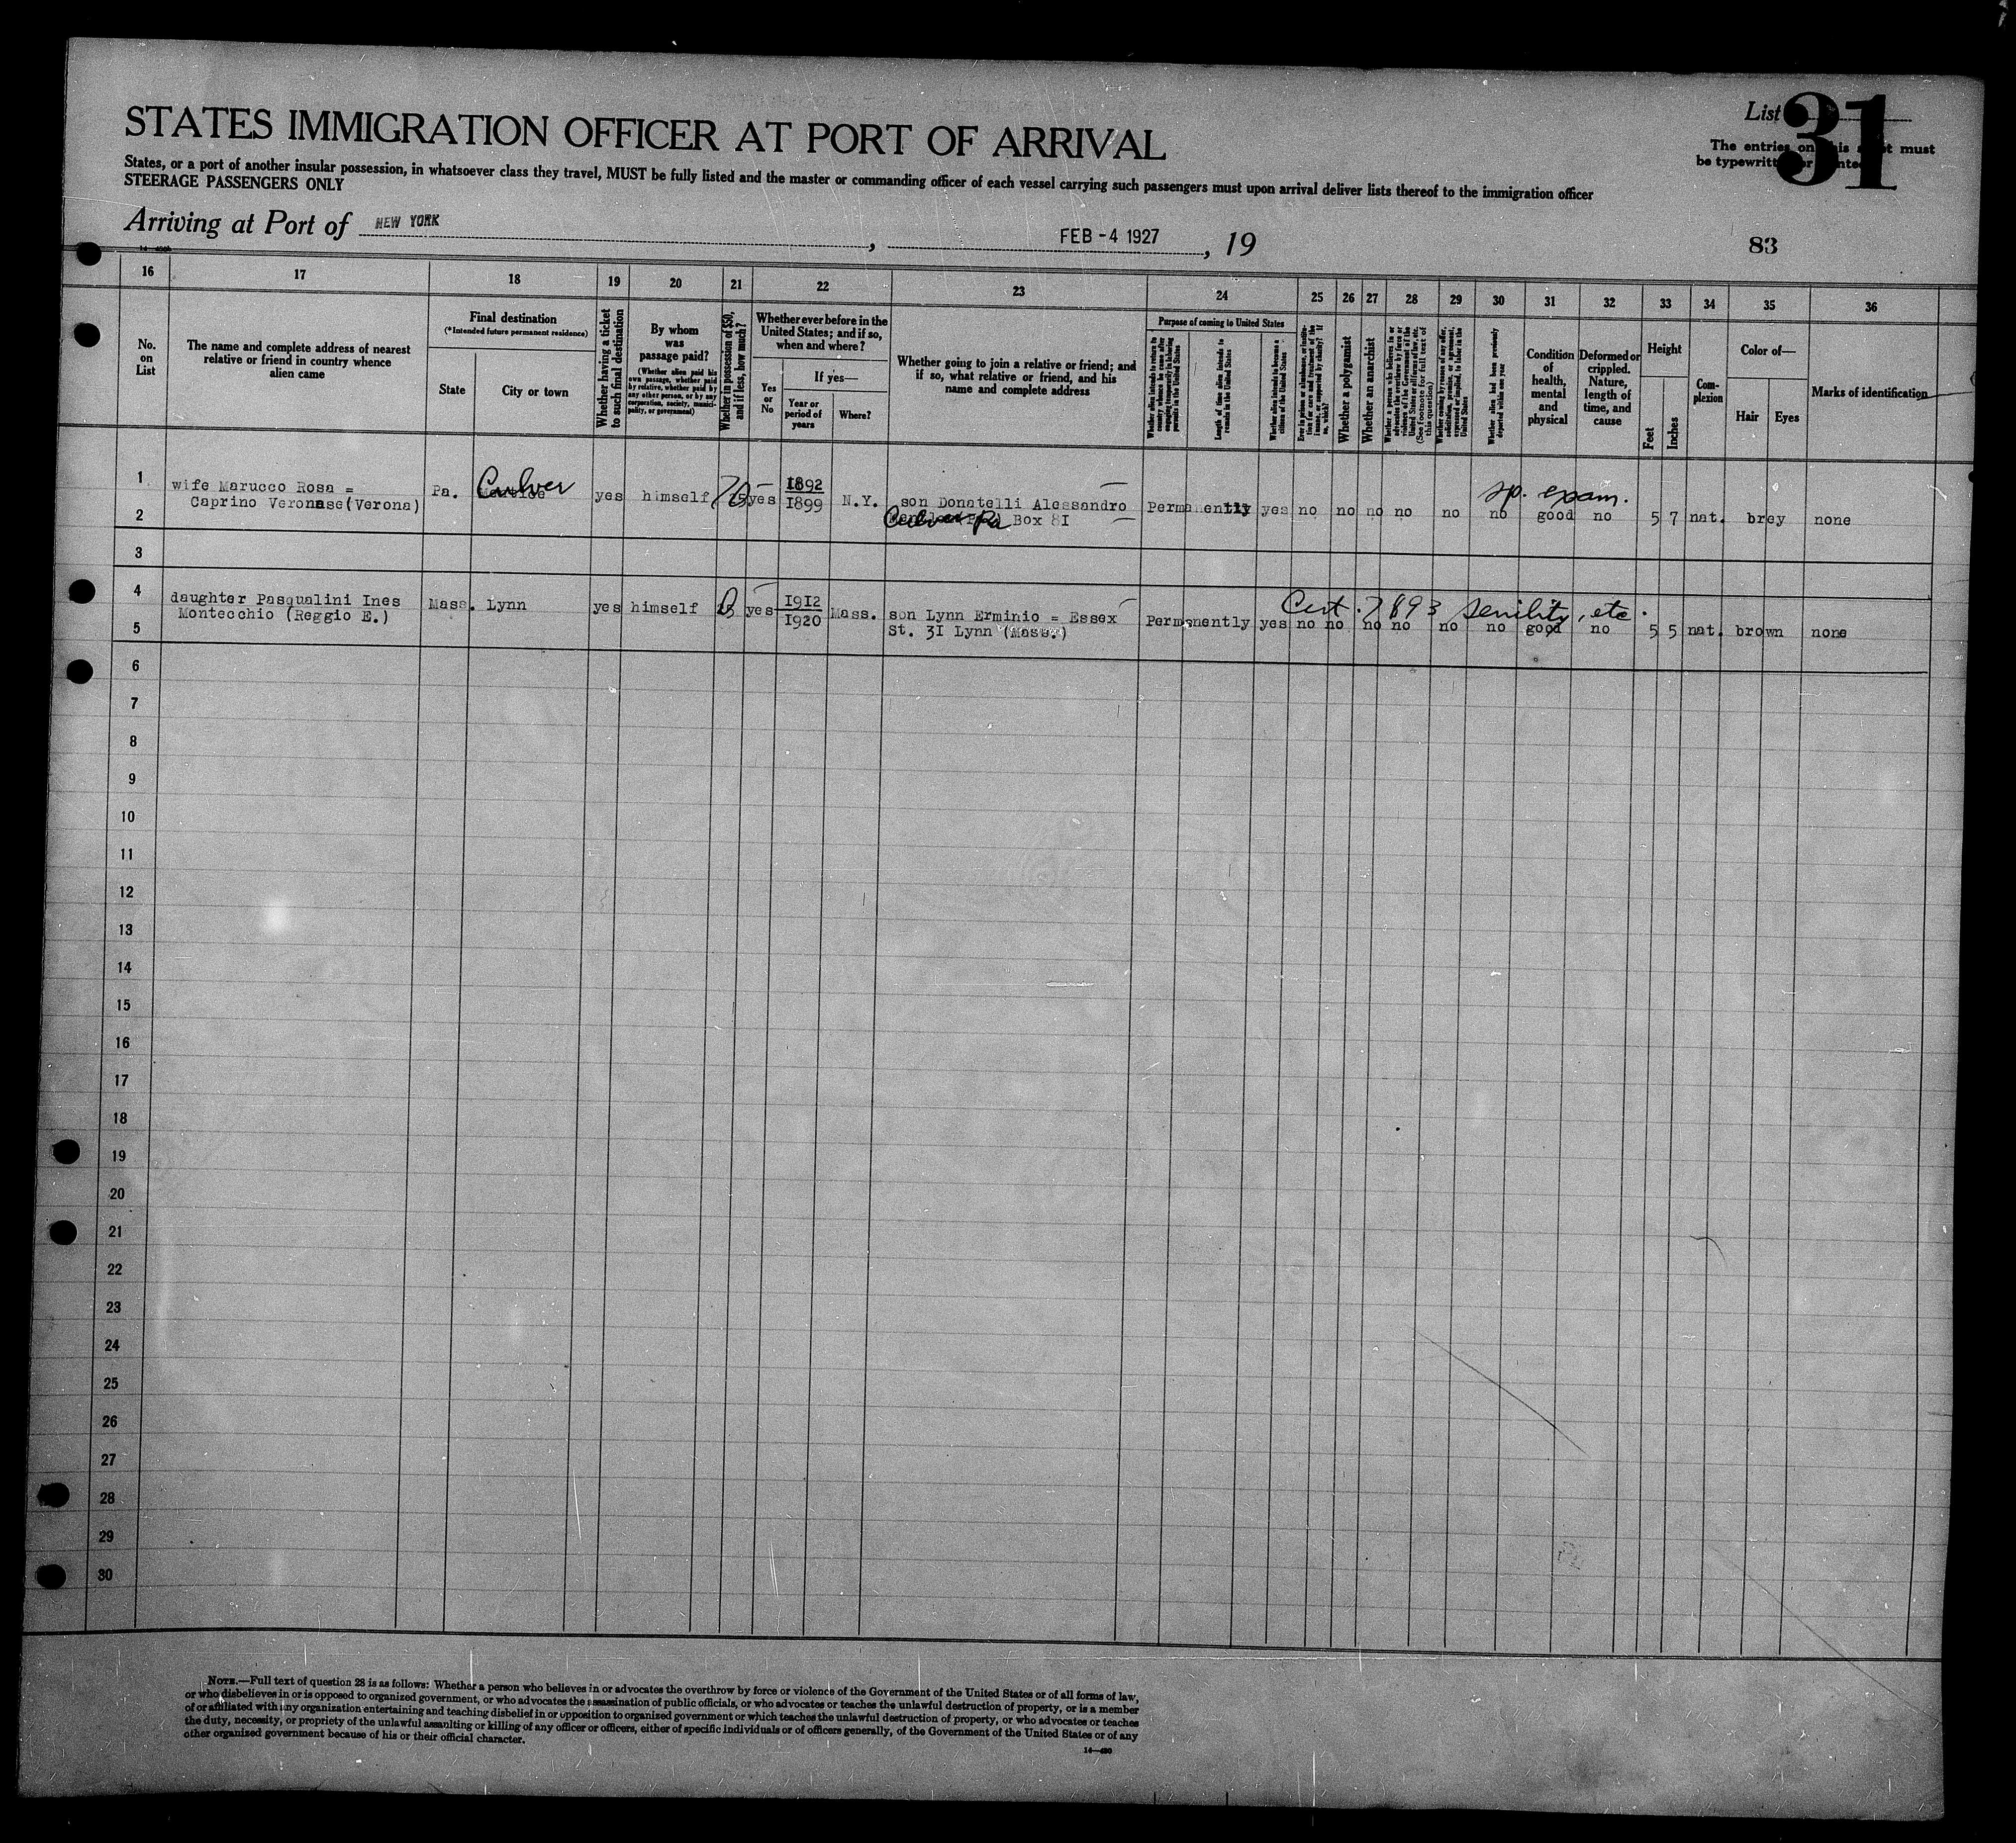 STATES IMMIGRATION OFFICER AT PORT OF ARRIVAL
List 31
The entries on this sheet must
be typewritten or printed
States, or a port of another insular possession, in whatsoever class they travel, MUST be fully listed and the master or commanding officer of each vessel carrying such passengers must upon arrival deliver lists thereof to the immigration officer
STEERAGE PASSENGERS ONLY
Arriving at Port of NEW YORK, FEB -4 1927, 19
83
16 17 18 19 20 21 22 23 24 25 26 27 28 29 30 31 32 33 34 35 36
No.
on
List
The name and complete address of nearest
relative or friend in country whence
alien came
Final destination
(*Intended future permanent residence)
State
City or town
Whether having a ticket
to such final destination
By whom
was
passage paid?
(Whether alien paid his
own passage, whether paid
by relative, whether paid by
any other person, or by any
corporation, society, munici-
pality, or government)
Whether in possession of $50,
and if less, how much?
Whether ever before in the
United States; and if so,
when and where?
Yes
or
No
If yes—
Year or
period of
years
Where?
Whether going to join a relative or friend; and
if so, what relative or friend, and his
name and complete address
Purpose of coming to United States
Whether alien intends to return to
country whence he came after
engaging temporarily in laboring
pursuits in the United States
Length of time alien intends to
remain in the United States
Whether alien intends to become a
citizen of the United States
Ever in prison or almshouse, or institu-
tion for care and treatment of the
insane, or supported by charity? If
so, which?
Whether a polygamist
Whether an anarchist
(See footnote for full text of
this question)
Whether coming by reason of any offer,
solicitation, promise, or agreement,
expressed or implied, to labor in the
United States
Whether alien had been previously
deported within one year
Condition
of
health,
mental
and
physical
Deformed or
crippled.
Nature,
length of
time, and
cause
Height
Feet
Inches
Com-
plexion
Color of—
Hair
Eyes
Marks of identification
1
wife Marucco Rosa =
Caprino Veronase(Verona)
Pa. Culver yes himself 25 yes 1892
1899 N.Y. son Donatelli Alessandro
Culver Pa Box 81
Permanently yes no no no no no no good no 5 7 nat. brey none
sp. exam.
2
3
4
daughter Pasqualini Ines
Montecchio (Reggio E.)
Mass. Lynn yes himself 25 yes 1912
1920 Mass. son Lynn Erminio = Essex
St. 31 Lynn (Mass.)
Permanently yes no no no no no no good no 5 5 nat. brown none
Cert. 7893 senility, etc.
5
6
7
8
9
10
11
12
13
14
15
16
17
18
19
20
21
22
23
24
25
26
27
28
29
30
NOTE.—Full text of question 28 is as follows: Whether a person who believes in or advocates the overthrow by force or violence of the Government of the United States or of all forms of law,
or who disbelieves in or is opposed to organized government, or who advocates the assassination of public officials, or who advocates or teaches the unlawful destruction of property, or is a member
of or affiliated with any organization entertaining and teaching disbelief in or opposition to organized government or which teaches the unlawful destruction of property, or who advocates or teaches
the duty, necessity, or propriety of the unlawful assaulting or killing of any officer or officers, either of specific individuals or of officers generally, of the Government of the United States or of any
other organized government because of his or their official character.
14—480